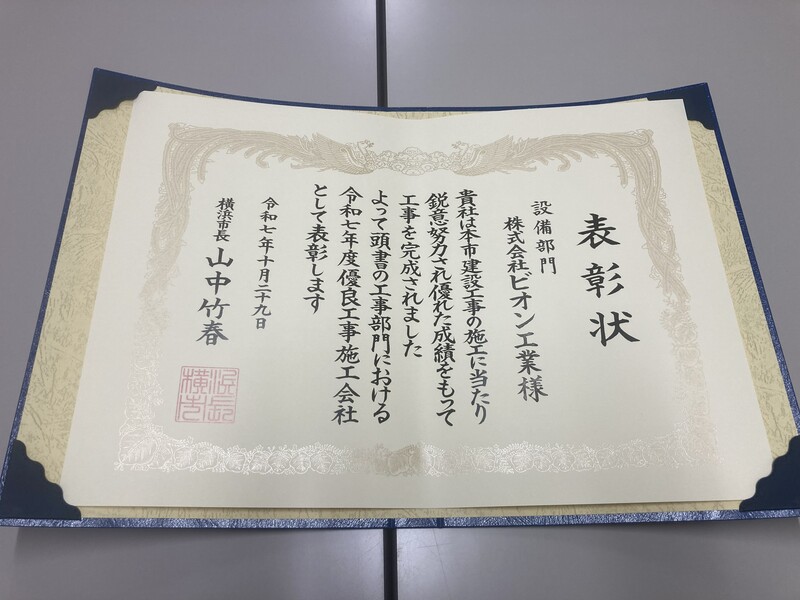 表彰状
設備部門
株式会社ビオン工業様
貴社は本市建設工事の施工に当たり
鋭意努力され優れた成績をもって
工事を完成されました
よって頭書の工事部門における
令和七年度優良工事施工会社
として表彰します
令和七年十月二十九日
横浜市長 山中竹春
横浜市長